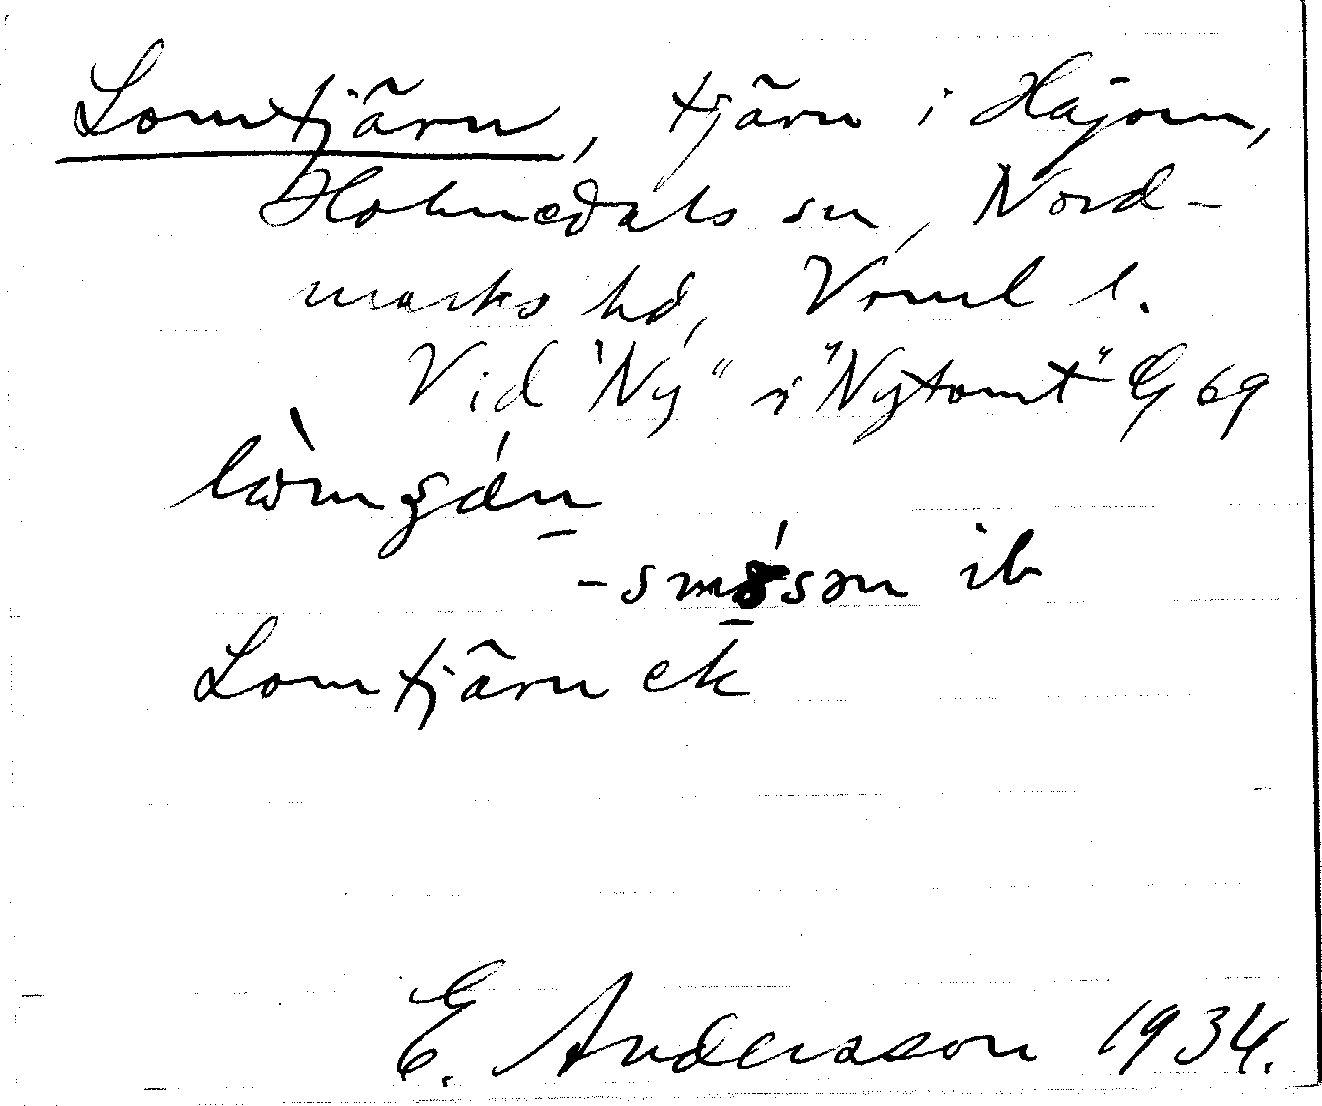 Lomtjärn, tjärn i Håjom,
Holmedals sn, Nord-
marks hd, Vrml l.
Vid "Ny" i "Nytomt" G 69
-smøsən ib
Lomtjärn ek
E. Andersson 1934.